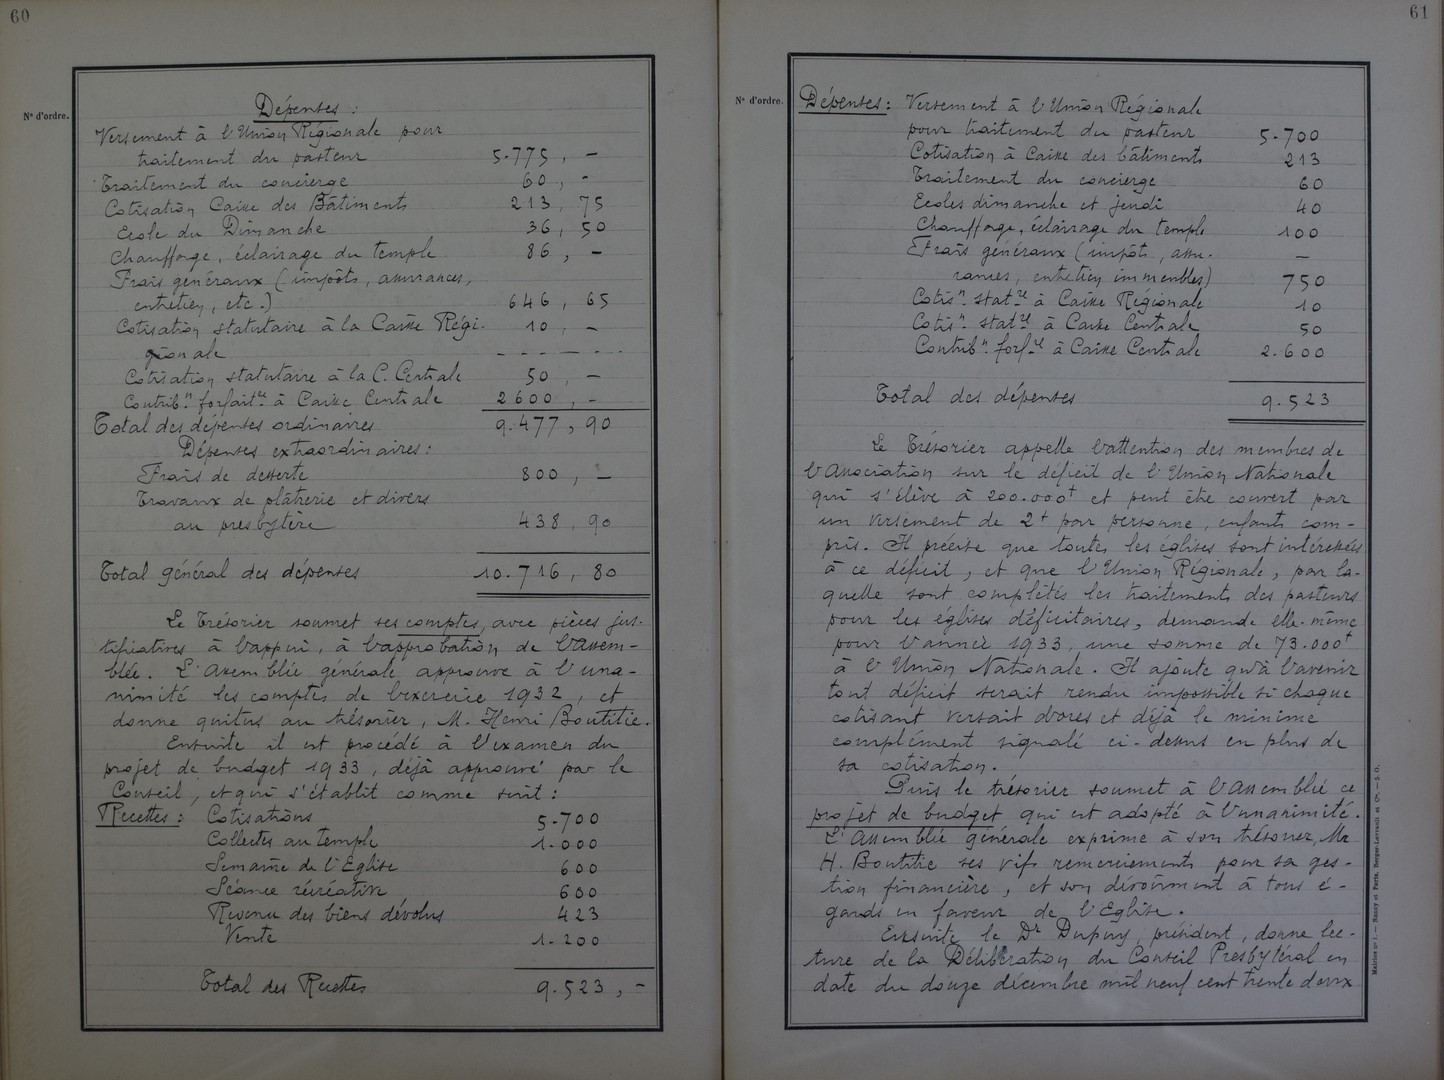 60
N° d'ordre.
Dépenses :
Versement à l'Union Régionale pour
traitement du pasteur 5.775, –
Traitement du concierge 60, –
Cotisation Caisse des Bâtiments 213, 75
Ecole du Dimanche 36, 50
Chauffage, éclairage du temple 86, –
Frais généraux (impôts, assurances,
entretien, etc.) 646, 65
Cotisation statutaire à la Caisse Régi- 10, –
gionale
Cotisation statutaire à la C. Centrale 50, –
Contribⁿ. forfaitʳᵉ à Caisse Centrale 2600, –
Total des dépenses ordinaires 9.477, 90
Dépenses extraordinaires :
Frais de desserte 800, –
Travaux de plâtrerie et divers
au presbytère 438, 90
Total général des dépenses 10.716, 80
Le Trésorier soumet ses comptes, avec pièces jus-
tificatives à l'appui, à l'approbation de l'Assem-
blée. L'Assemblée générale approuve à l'una-
nimité les comptes de l'exercice 1932, et
donne quitus au trésorier, M. Henri Boutitie.
Ensuite il est procédé à l'examen du
projet de budget 1933, déjà approuvé par le
Conseil, et qui s'établit comme suit :
Recettes : Cotisations 5.700
Collectes au temple 1.000
Semaine de l'Eglise 600
Séance récréative 600
Revenu des biens dévolus 423
Vente 1.200
Total des Recettes 9.523, –
61
N° d'ordre.
Dépenses : Versement à l'Union Régionale
pour traitement du pasteur 5.700
Cotisation à Caisse des bâtiments 213
Traitement du concierge 60
Ecoles dimanche et jeudi 40
Chauffage, éclairage du temple 100
Frais généraux (impôts, assu- –
rances, entretien immeubles) 750
Cotisⁿ. statʳᵉ à Caisse Régionale 10
Cotisⁿ. statʳᵉ à Caisse Centrale 50
Contribⁿ. forfʳᵉ à Caisse Centrale 2.600
Total des dépenses 9.523
Le Trésorier appelle l'attention des membres de
l'Association sur le déficit de l'Union Nationale
qui s'élève à 200.000ᶠ et peut être couvert par
un versement de 2ᶠ par personne, enfants com-
pris. Il précise que toutes les églises sont intéressées
à ce déficit, et que l'Union Régionale, par la-
quelle sont complétés les traitements des pasteurs
pour les églises déficitaires, demande elle-même
pour l'année 1933, une somme de 73.000ᶠ
à l'Union Nationale. Il ajoute qu'à l'avenir
tout déficit serait rendu impossible si chaque
cotisant versait d'ores et déjà le minime
complément signalé ci-dessus en plus de
sa cotisation.
Puis le trésorier soumet à l'Assemblée ce
projet de budget qui est adopté à l'unanimité.
L'Assemblée générale exprime à son trésorier, Mr
H. Boutitie ses vifs remerciements pour sa ges-
tion financière, et son dévoûment à tous é-
gards en faveur de l'Eglise.
Ensuite le Dr Dupuy, président, donne lec-
ture de la Délibération du Conseil Presbytéral en
date du douze décembre mil neuf cent trente deux
Mairies n° 1. — Nancy et Paris, Berger-Levrault et Cⁱᵉ. — S. O.